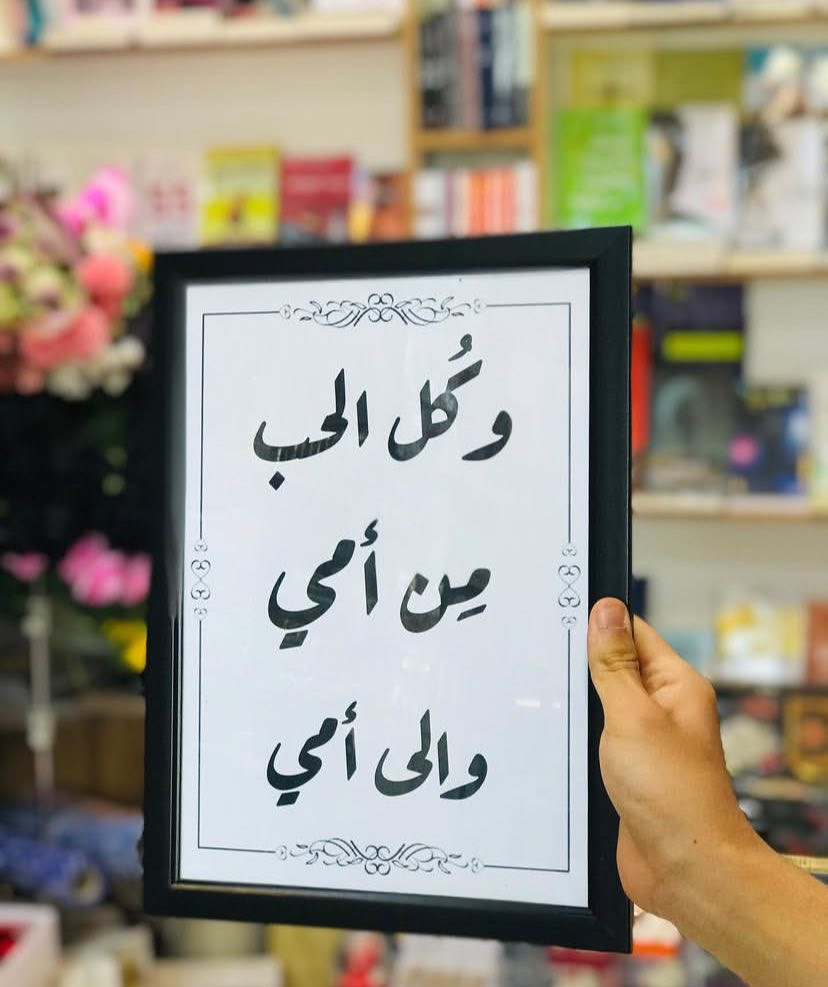 وكُل الحب
مِن أمي
والى أمي